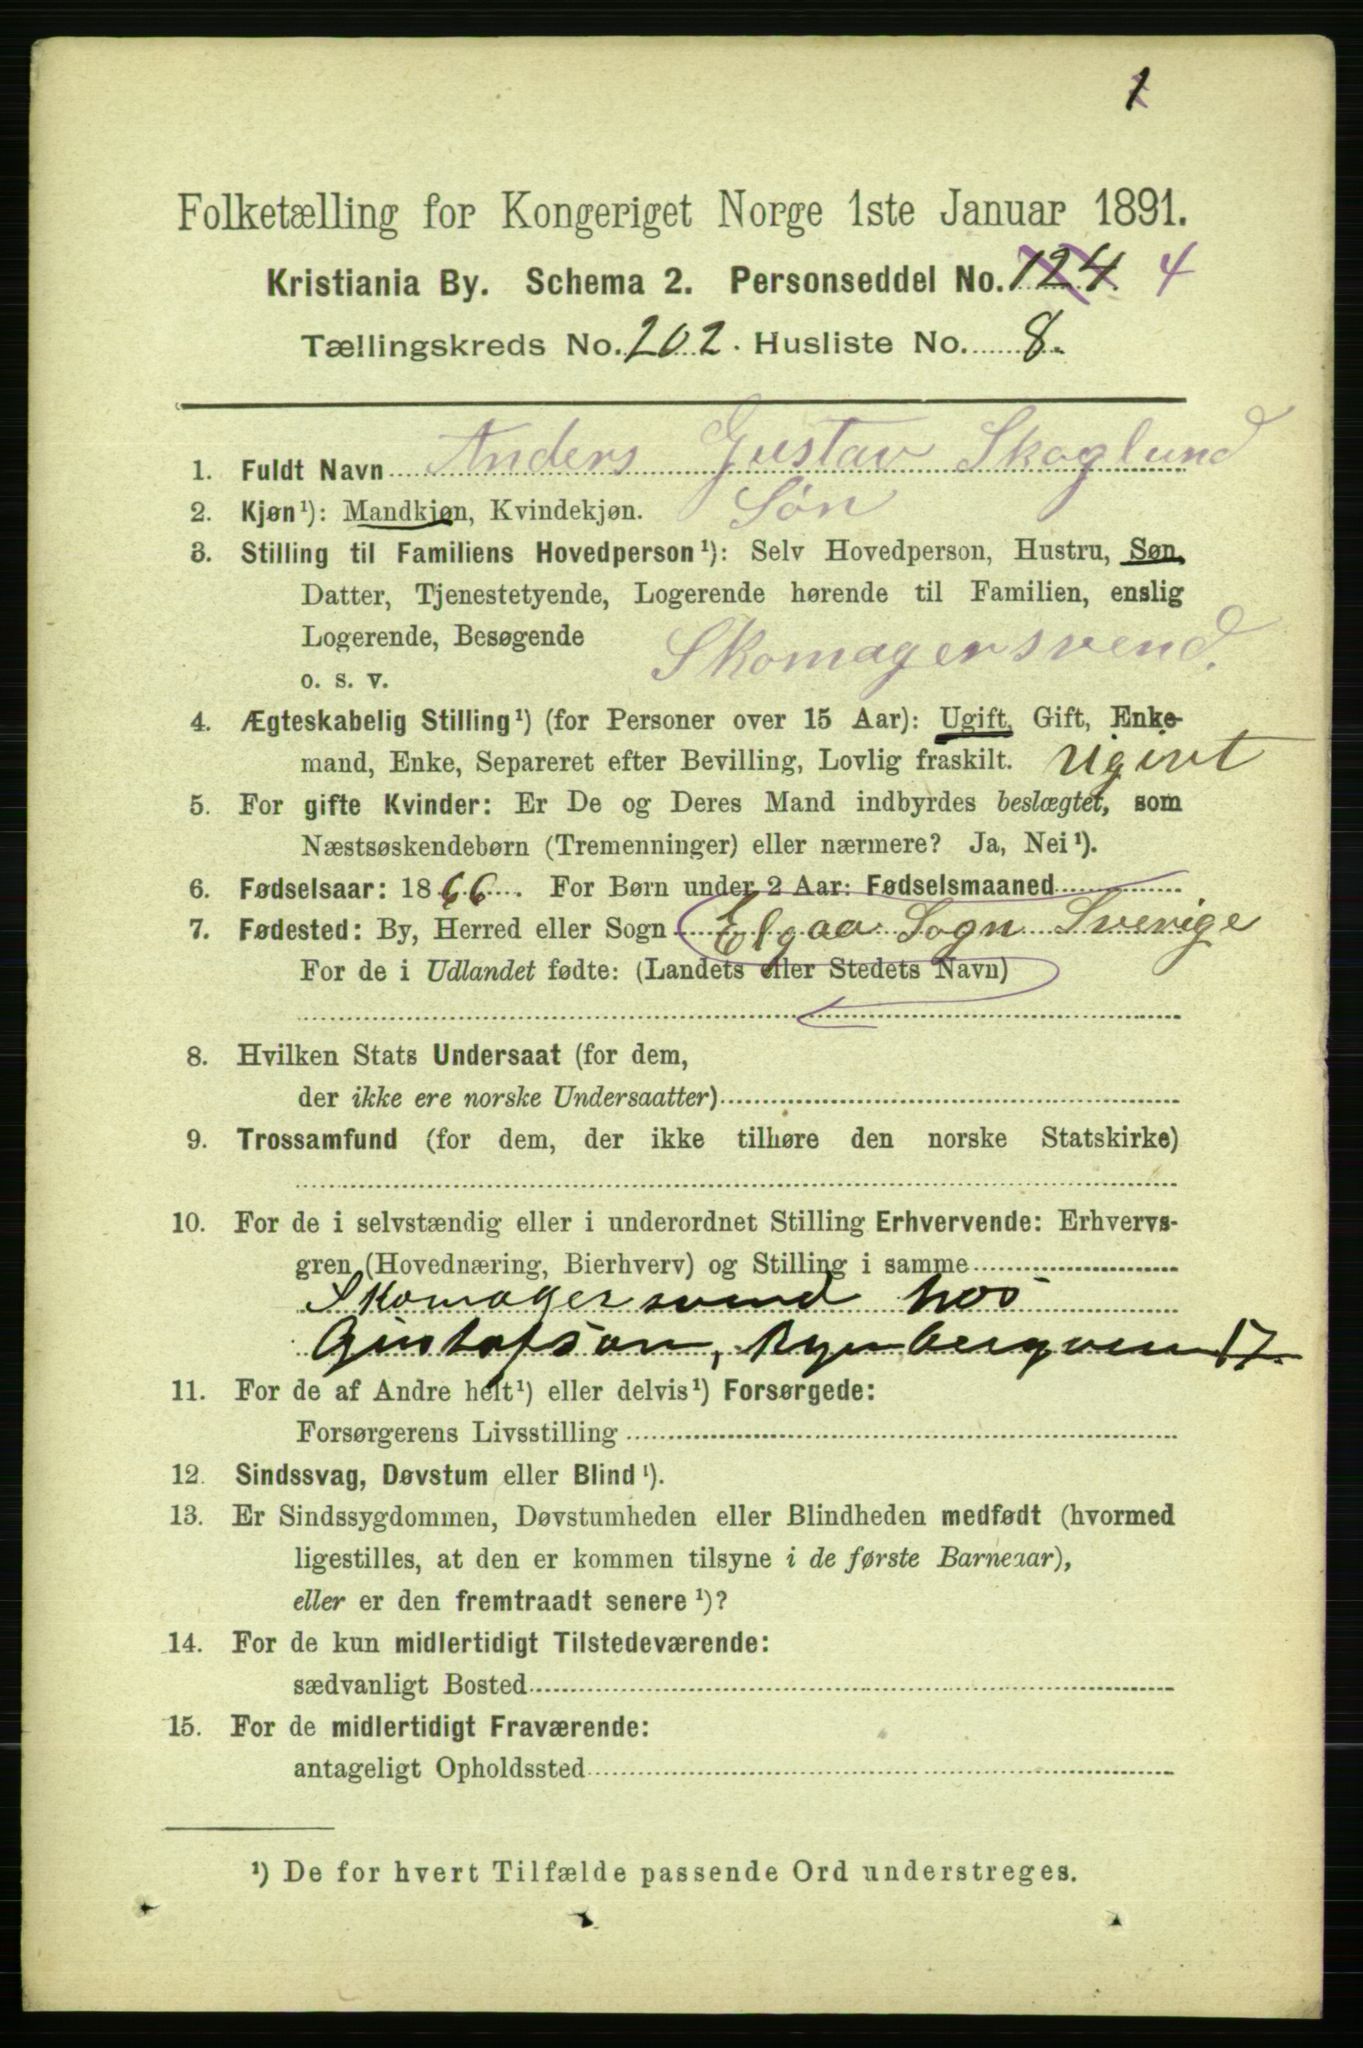 1
Folketælling for Kongeriget Norge 1ste Januar 1891.
Kristiania By. Schema 2. Personseddel No. 124 4
Tællingskreds No. 202. Husliste No. 8.
1. Fuldt Navn Anders Gustav Skoglund
2. Kjøn¹): Mandkjøn, Kvindekjøn. Søn
3. Stilling til Familiens Hovedperson¹): Selv Hovedperson, Hustru, Søn,
Datter, Tjenestetyende, Logerende hørende til Familien, enslig
Logerende, Besøgende Skomagersvend.
o. s. v.
4. Ægteskabelig Stilling¹) (for Personer over 15 Aar): Ugift, Gift, Enke-
mand, Enke, Separeret efter Bevilling, Lovlig fraskilt.
5. For gifte Kvinder: Er De og Deres Mand indbyrdes beslægtet, som
Næstsøskendebørn (Tremenninger) eller nærmere? Ja, Nei¹).
6. Fødselsaar: 1866. For Børn under 2 Aar: Fødselsmaaned
7. Fødested: By, Herred eller Sogn Elgaa Sogn Sverige
For de i Udlandet fødte: (Landets eller Stedets Navn)
8. Hvilken Stats Undersaat (for dem,
der ikke ere norske Undersaatter)
9. Trossamfund (for dem, der ikke tilhøre den norske Statskirke)
10. For de i selvstændig eller i underordnet Stilling Erhvervende: Erhvervs-
gren (Hovednæring, Bierhverv) og Stilling i samme
Skomagersvend hos
Gustafson, 17.
11. For de af Andre helt¹) eller delvis¹) Forsørgede:
Forsørgerens Livsstilling
12. Sindssvag, Døvstum eller Blind¹).
13. Er Sindssygdommen, Døvstumheden eller Blindheden medfødt (hvormed
ligestilles, at den er kommen tilsyne i de første Barneaar),
eller er den fremtraadt senere¹)?
14. For de kun midlertidigt Tilstedeværende:
sædvanligt Bosted
15. For de midlertidigt Fraværende:
antageligt Opholdssted
¹) De for hvert Tilfælde passende Ord understreges.